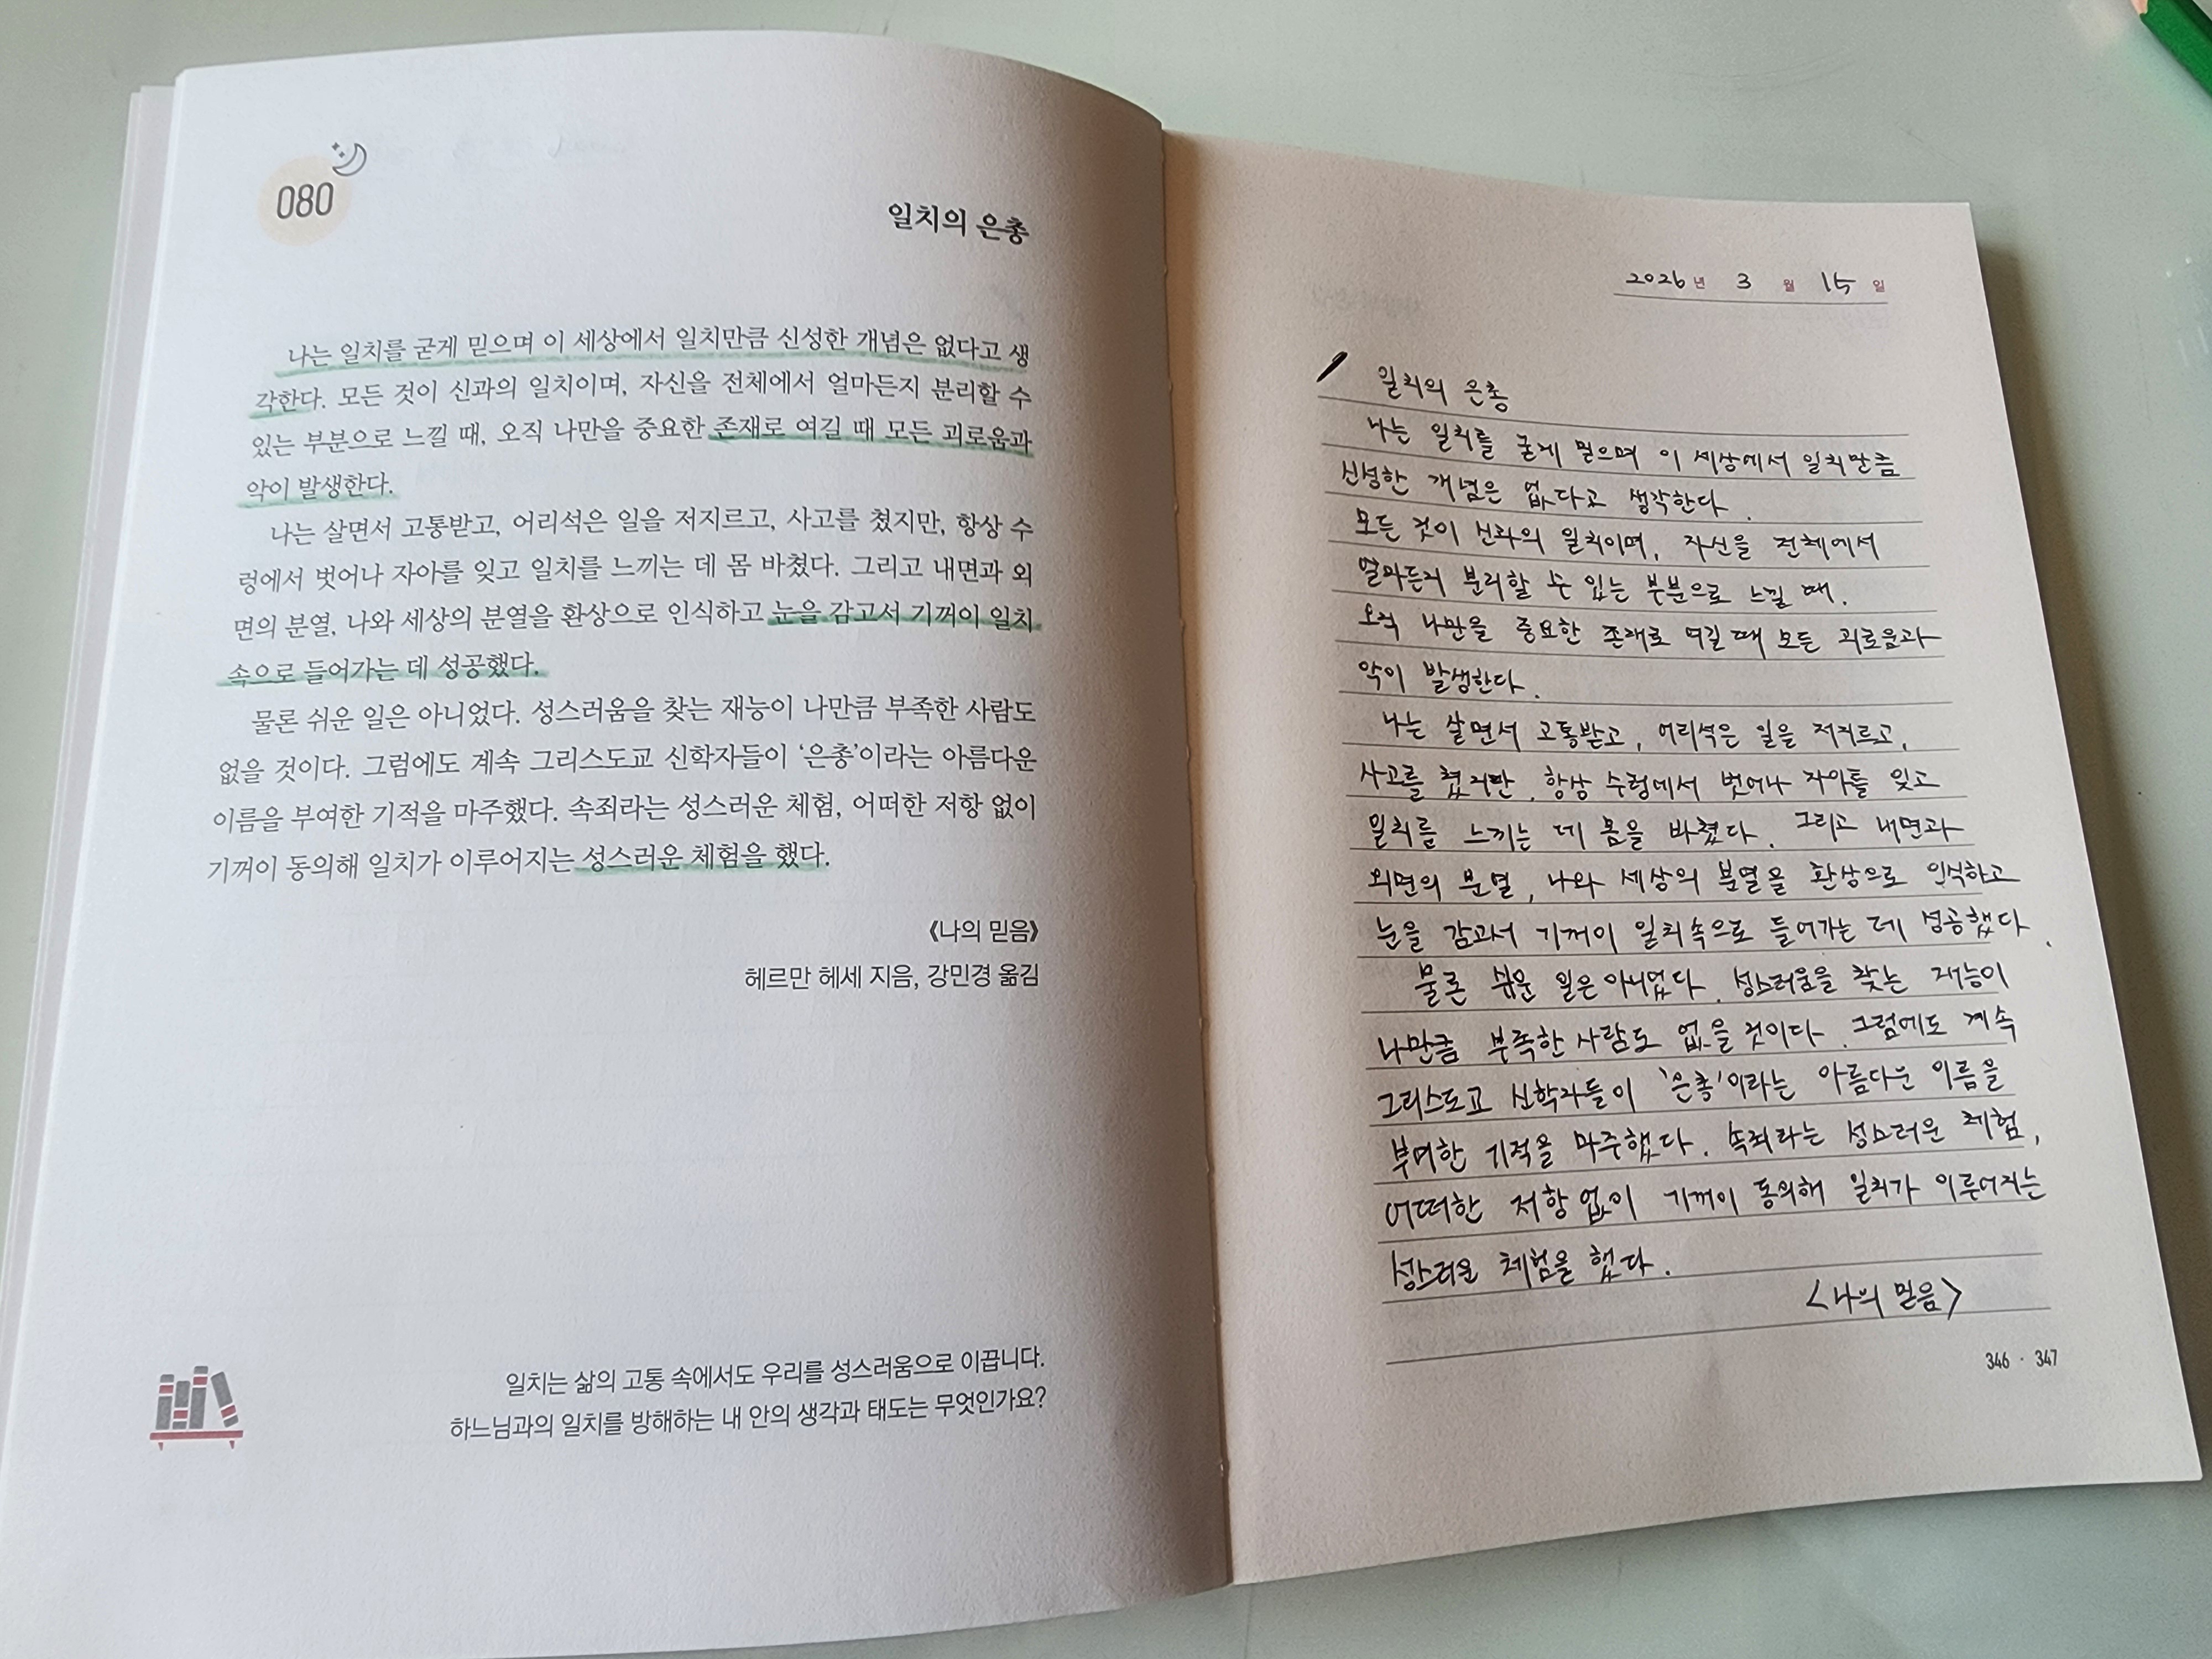 080
일치의 은총
나는 일치를 굳게 믿으며 이 세상에서 일치만큼 신성한 개념은 없다고 생
각한다. 모든 것이 신과의 일치이며, 자신을 전체에서 얼마든지 분리할 수
있는 부분으로 느낄 때, 오직 나만을 중요한 존재로 여길 때 모든 괴로움과
악이 발생한다.
나는 살면서 고통받고, 어리석은 일을 저지르고, 사고를 쳤지만, 항상 수
렁에서 벗어나 자아를 잊고 일치를 느끼는 데 몸 바쳤다. 그리고 내면과 외
면의 분열, 나와 세상의 분열을 환상으로 인식하고 눈을 감고서 기꺼이 일치
속으로 들어가는 데 성공했다.
물론 쉬운 일은 아니었다. 성스러움을 찾는 재능이 나만큼 부족한 사람도
없을 것이다. 그럼에도 계속 그리스도교 신학자들이 ‘은총’이라는 아름다운
이름을 부여한 기적을 마주했다. 속죄라는 성스러운 체험, 어떠한 저항 없이
기꺼이 동의해 일치가 이루어지는 성스러운 체험을 했다.
《나의 믿음》
헤르만 헤세 지음, 강민경 옮김
일치는 삶의 고통 속에서도 우리를 성스러움으로 이끕니다.
하느님과의 일치를 방해하는 내 안의 생각과 태도는 무엇인가요?
2026년 3월 15일
일치의 은총
나는 일치를 굳게 믿으며 이 세상에서 일치만큼
신성한 개념은 없다고 생각한다.
모든 것이 신과의 일치이며, 자신을 전체에서
얼마든지 분리할 수 있는 부분으로 느낄 때.
오직 나만을 중요한 존재로 여길 때 모든 괴로움과
악이 발생한다.
나는 살면서 고통받고, 어리석은 일을 저지르고,
사고를 쳤지만, 항상 수렁에서 벗어나 자아를 잊고
일치를 느끼는 데 몸을 바쳤다. 그리고 내면과
외면의 분열, 나와 세상의 분열을 환상으로 인식하고
눈을 감고서 기꺼이 일치속으로 들어가는 데 성공했다.
물론 쉬운 일은 아니었다. 성스러움을 찾는 재능이
나만큼 부족한 사람도 없을 것이다. 그럼에도 계속
그리스도교 신학자들이 '은총'이라는 아름다운 이름을
부여한 기적을 마주했다. 속죄라는 성스러운 체험,
어떠한 저항 없이 기꺼이 동의해 일치가 이루어지는
성스러운 체험을 했다.
<나의 믿음>
346 · 347